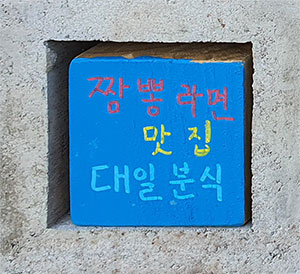 짬뽕라면
맛집
대일분식